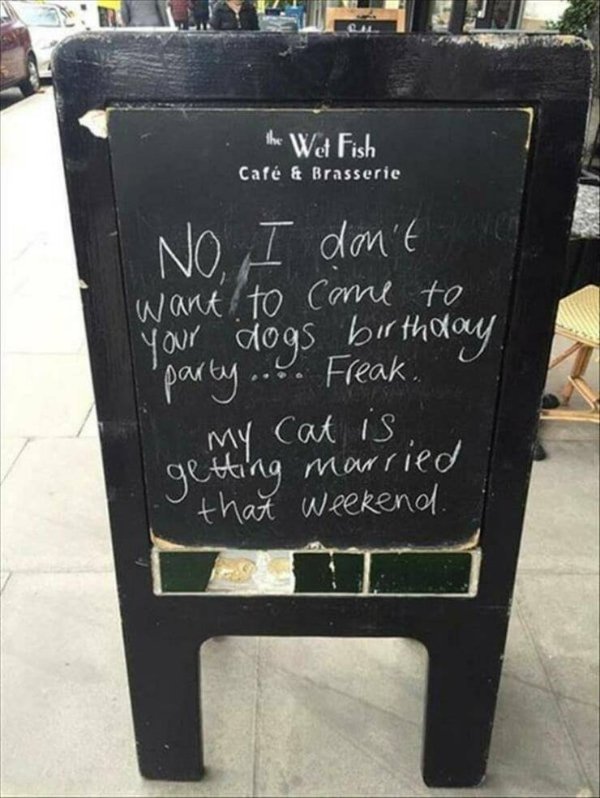 the Wet Fish
Café & Brasserie
NO, I don't
want to come to
your dogs birthday
party.... Freak.
My cat is
getting married
that weekend.